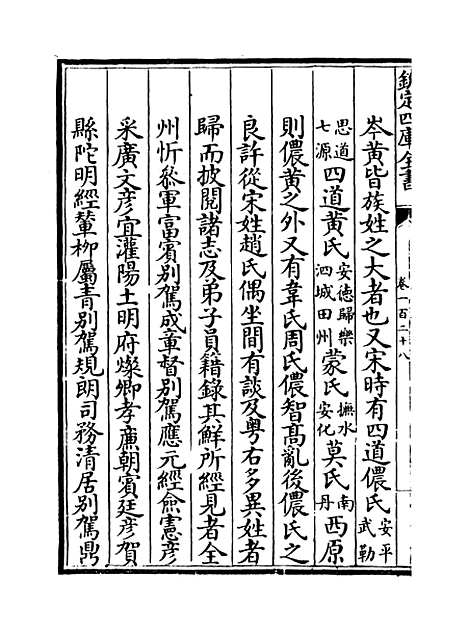 欽定四庫全書
卷一百二十八
岑黃皆族姓之大者也又宋時有四道儂氏安平武勒
思道七源四道黃氏安德歸樂泗城田州蒙氏撫水安化莫氏南丹西原
則儂黃之外又有韋氏周氏儂智高亂後儂氏之
良許從宋姓趙氏偶坐間有談及粵右多異姓者
歸而披閱諸志及弟子員籍錄其鮮所經見者全
州忻叅軍富賓别駕成童督别駕應元經俞憲彦
采廣文彦宜灌陽土明府燦卿孝廉朝賓廷彦賀
縣陀明經輦柳屬青别駕規朗司務清居别駕鼎